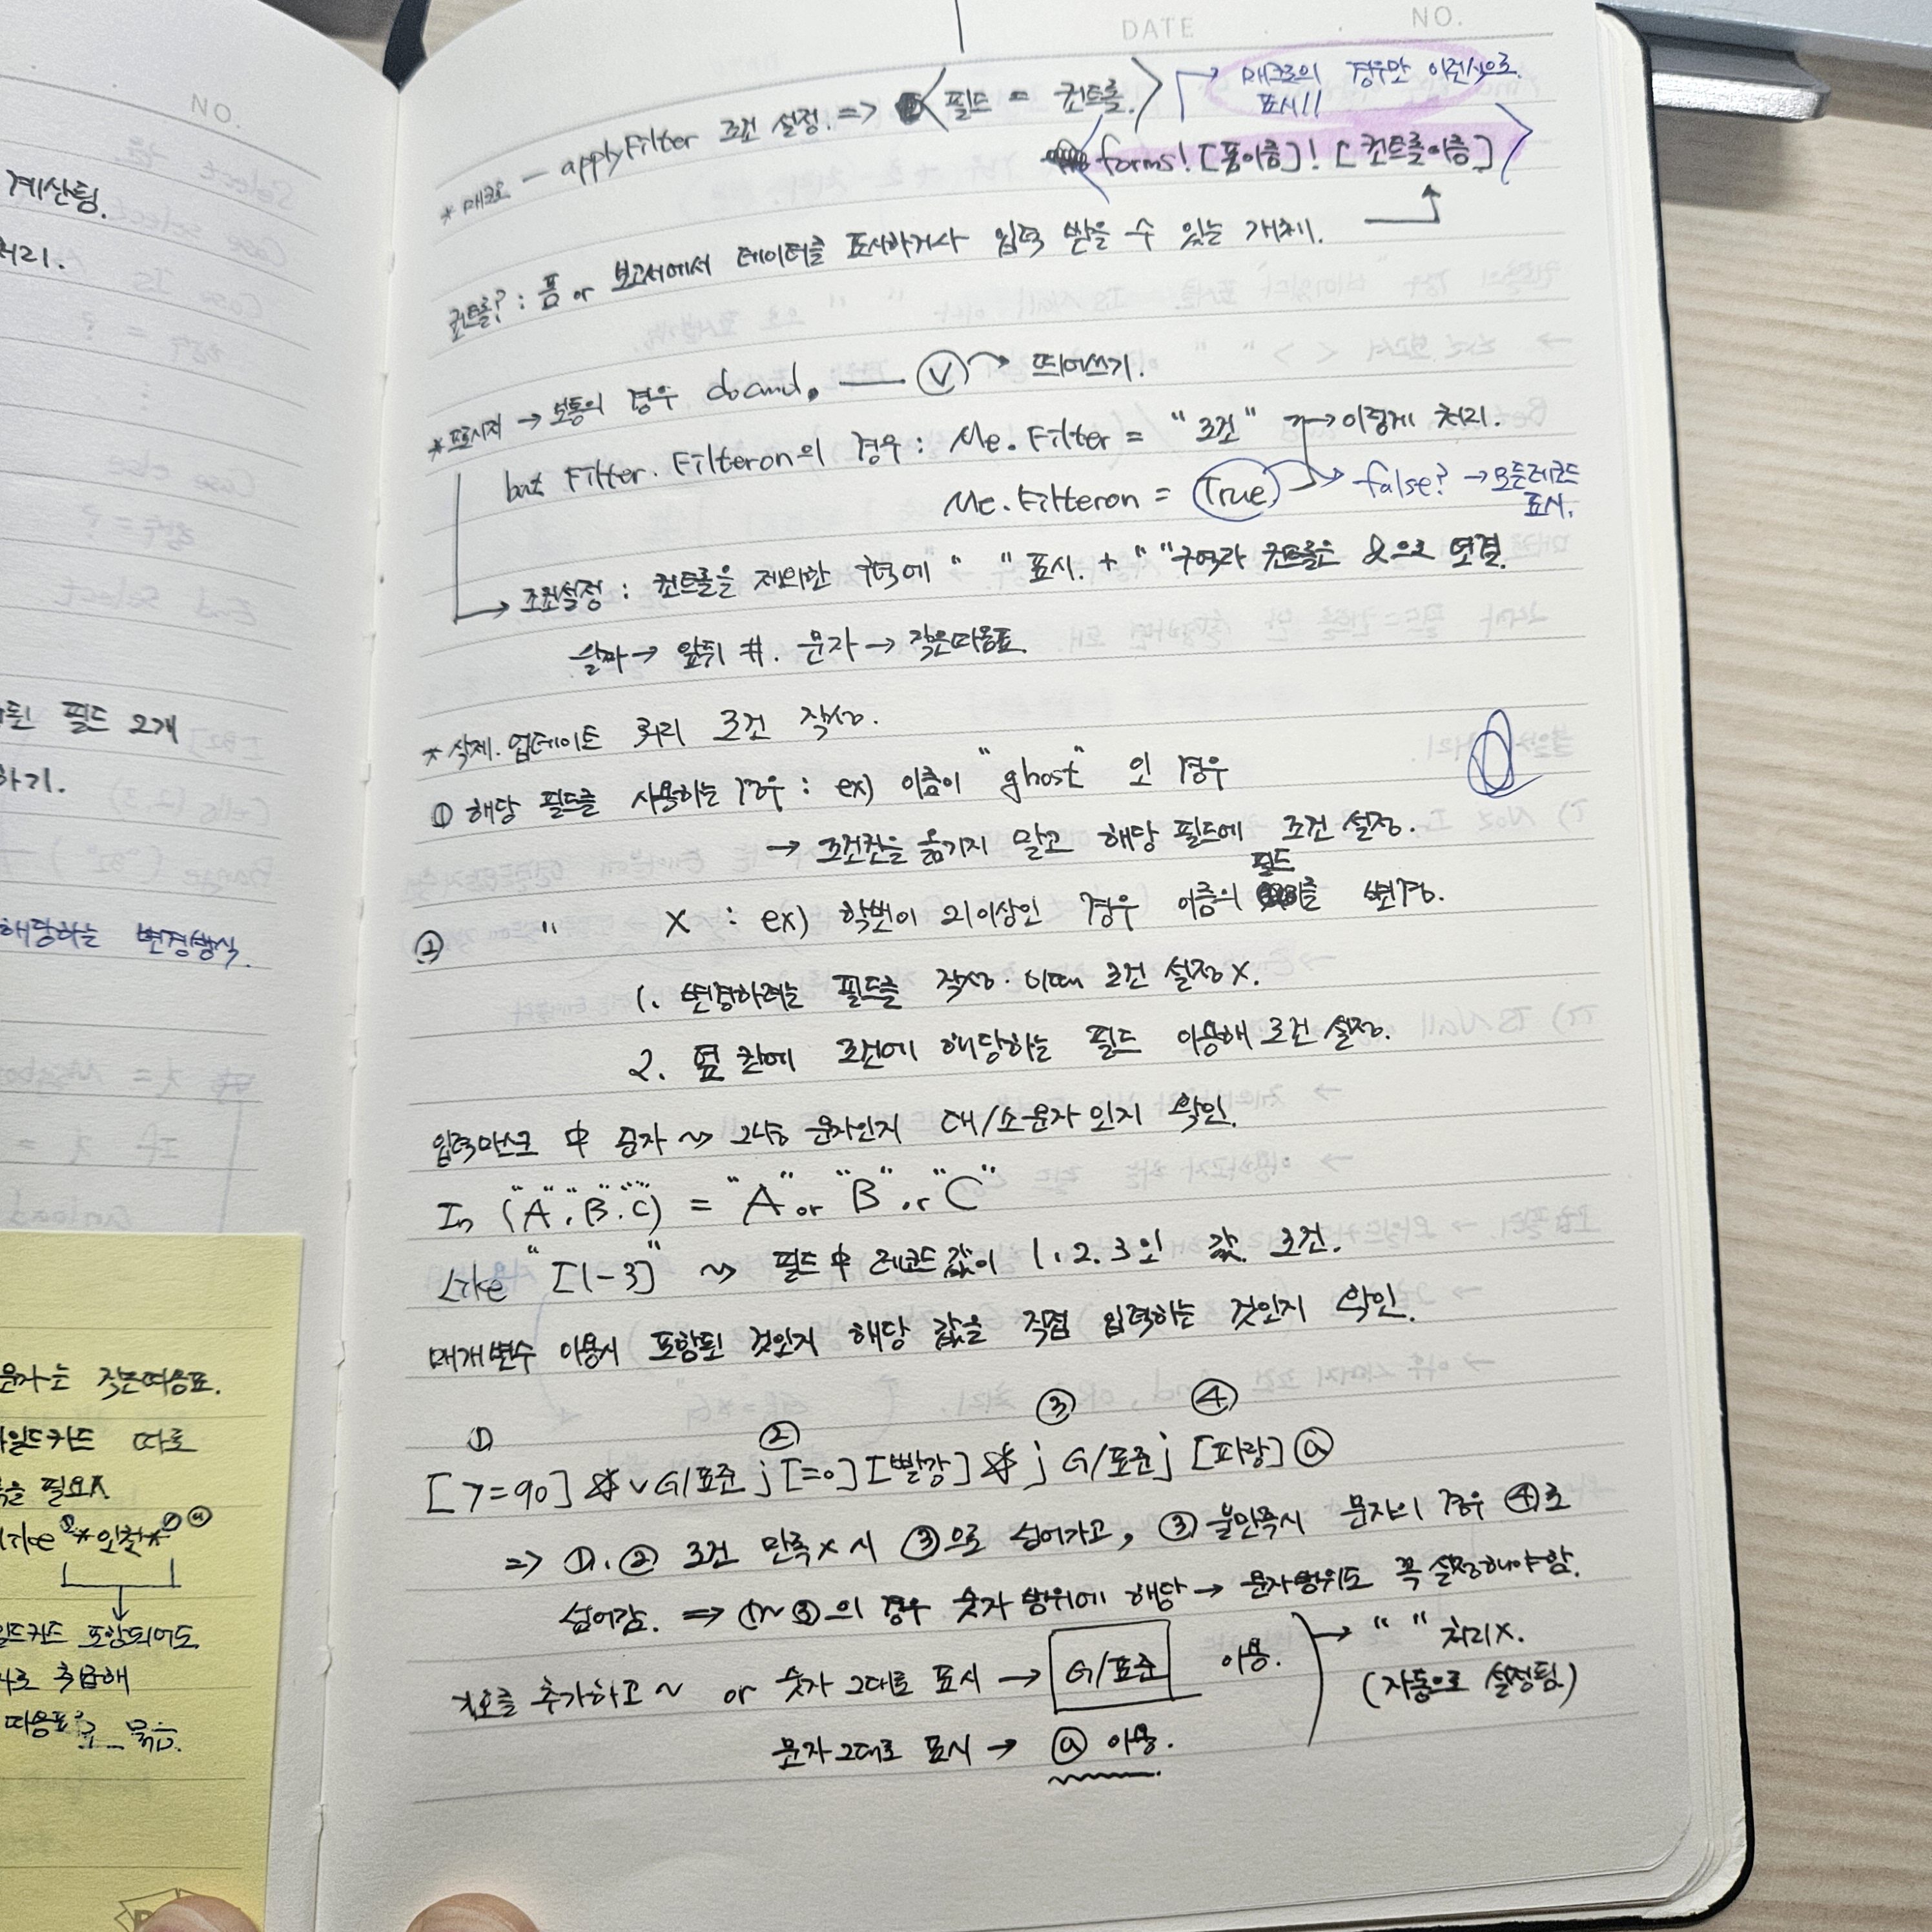 NO.
계산됨.
처리.
된 필드 2개
하기.
해당하는 변경방식.
문자는 작은따옴표.
와일드카드 따로
필요X
like "*인철*"
와일드카드 포함되어도
취급해
따옴표로 묶음.
DATE . . NO.
* 매크로 — applyFilter 조건 설정. => < 필드 = 컨트롤. > → 매크로의 경우만 이런식으로
표시!!
forms! [폼이름]! [컨트롤이름]
컨트롤? : 폼 or 보고서에서 데이터를 표시하거나 입력 받을 수 있는 개체.
* 프로시저 → 보통의 경우 docmd. — Ⓥ → 띄어쓰기.
but Filter. Filteron의 경우 : Me. Filter = "조건" → 이렇게 처리.
Me. Filteron = True → false? → 모든레코드
표시.
→ 조건설정 : 컨트롤을 제외한 구역에 " " 표시. + " "구역과 컨트롤은 &으로 연결.
날짜 → 앞뒤 #. 문자 → 작은따옴표.
* 삭제. 업데이트 쿼리 조건 작성.
① 해당 필드를 사용하는 경우 : ex) 이름이 "ghost" 인 경우
→ 조건칸을 옮기지 말고 해당 필드에 조건 설정.
필드
② " X : ex) 학번이 21이상인 경우 이름의 를 변경.
1. 변경하려는 필드를 작성. 이때 조건 설정X.
2. 옆 칸에 조건에 해당하는 필드 이용해 조건 설정.
입력마스크 中 문자 ~> 그냥 문자인지 대/소문자 인지 확인.
In ("A", "B". "C") = "A" or "B" or "C"
Like "[1-3]" ~> 필드 中 레코드 값이 1. 2. 3 인 값. 조건.
매개변수 이용시 포함된 것인지 해당 값을 직접 입력하는 것인지 확인.
① ② ③ ④
[>=90] ☆ ∨ G/표준 ; [=0] [빨강] ☆ ; G/표준 ; [파랑] @
=> ①. ② 조건 만족X시 ③으로 넘어가고, ③ 불만족시 문자의 경우 ④로
넘어감. => ①~③의 경우 숫자 범위에 해당 → 문자범위도 꼭 설정해야함.
기호를 추가하고 ~ or 숫자 그대로 표시 → G/표준 이용. → " " 처리X.
(자동으로 설정됨)
문자 그대로 표시 → @ 이용.